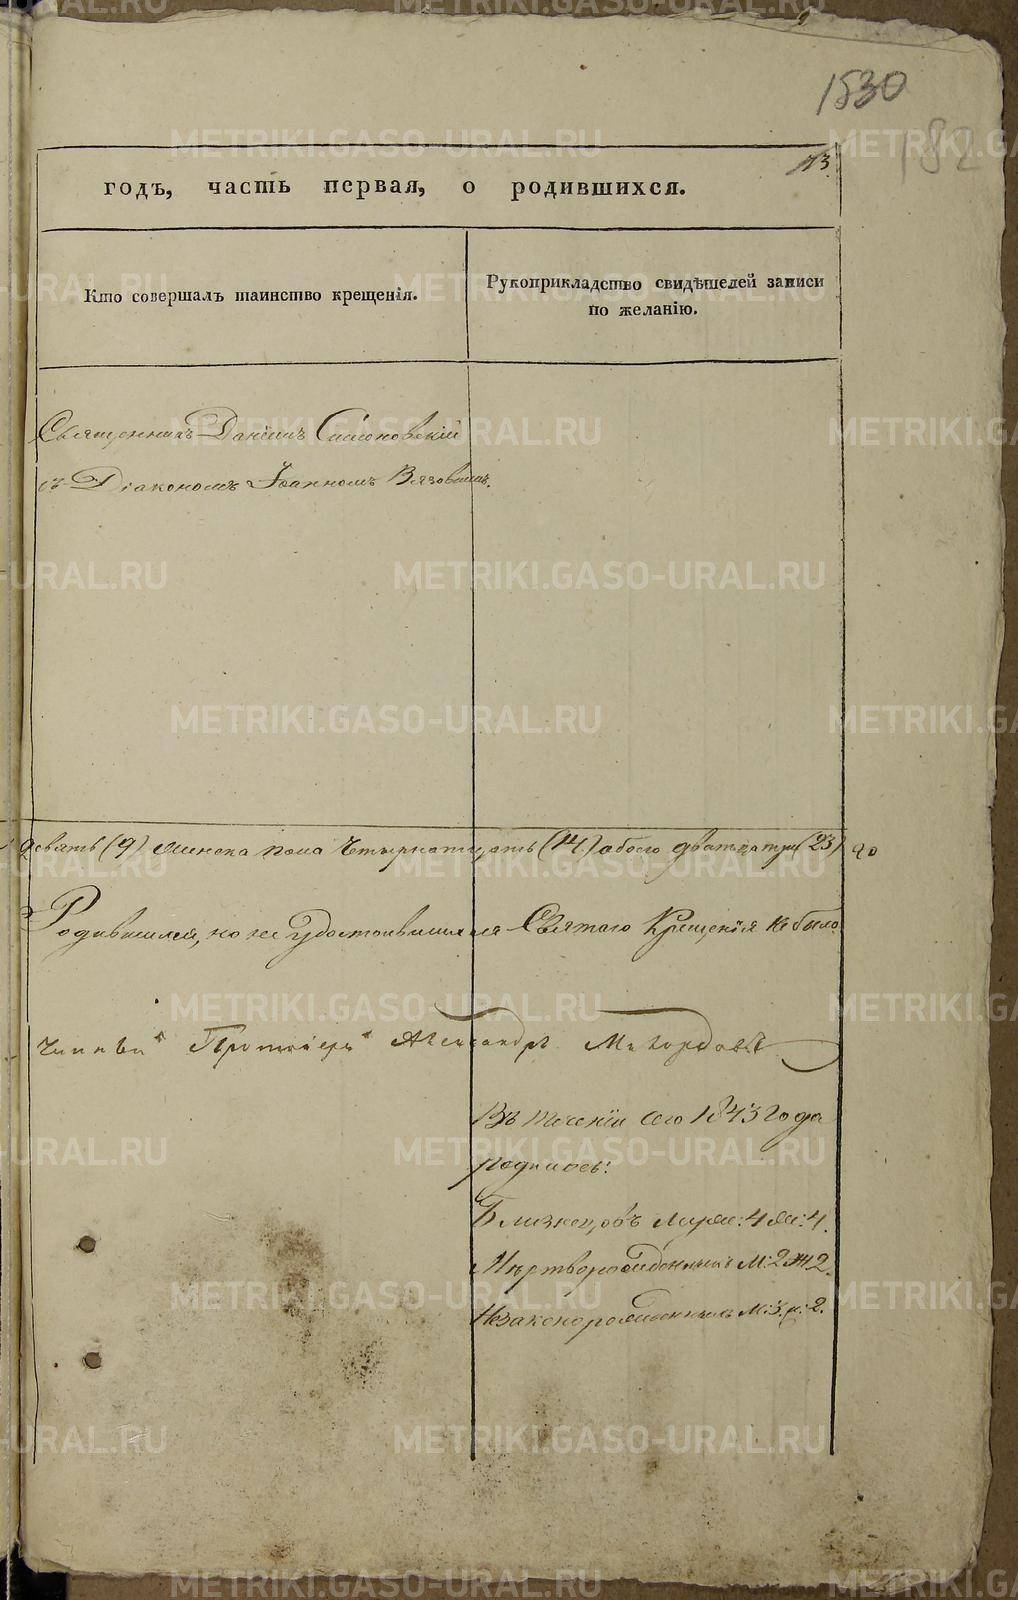 1530
182
годъ, часть первая, о родившихся.
Кто совершалъ таинство крещенія.
Рукоприкладство свидѣтелей записи
по желанію.
Священникъ Даніилъ
съ Діакономъ Іоанномъ Вязовымъ.
девять (9) женска пола четырнатцать (14.) обоего дватцатри (23)
Родившихся, но не удостоившихся Святаго Крещенія не было
Протоіерей Александръ
Въ теченіи сего 1843 года
родилось:
Близнецовъ муж: 4 жен: 4.
Мертворожденныхъ М: 2 Ж 2.
Незаконорожденныхъ М: 3. ж: 2.
METRIKI.GASO-URAL.RU